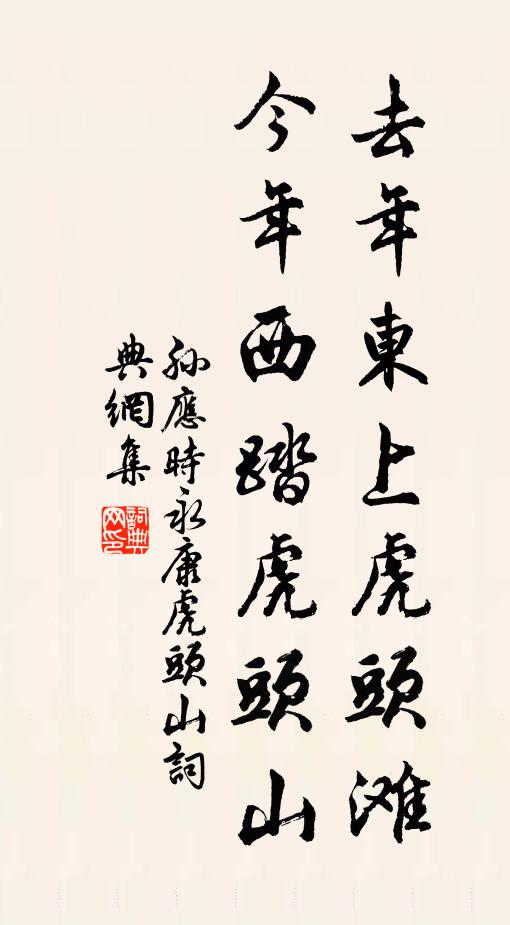 去年東上虎頭滩
今年西踏虎頭山
孫應時永康虎頭山詞
典網集
詞典網印